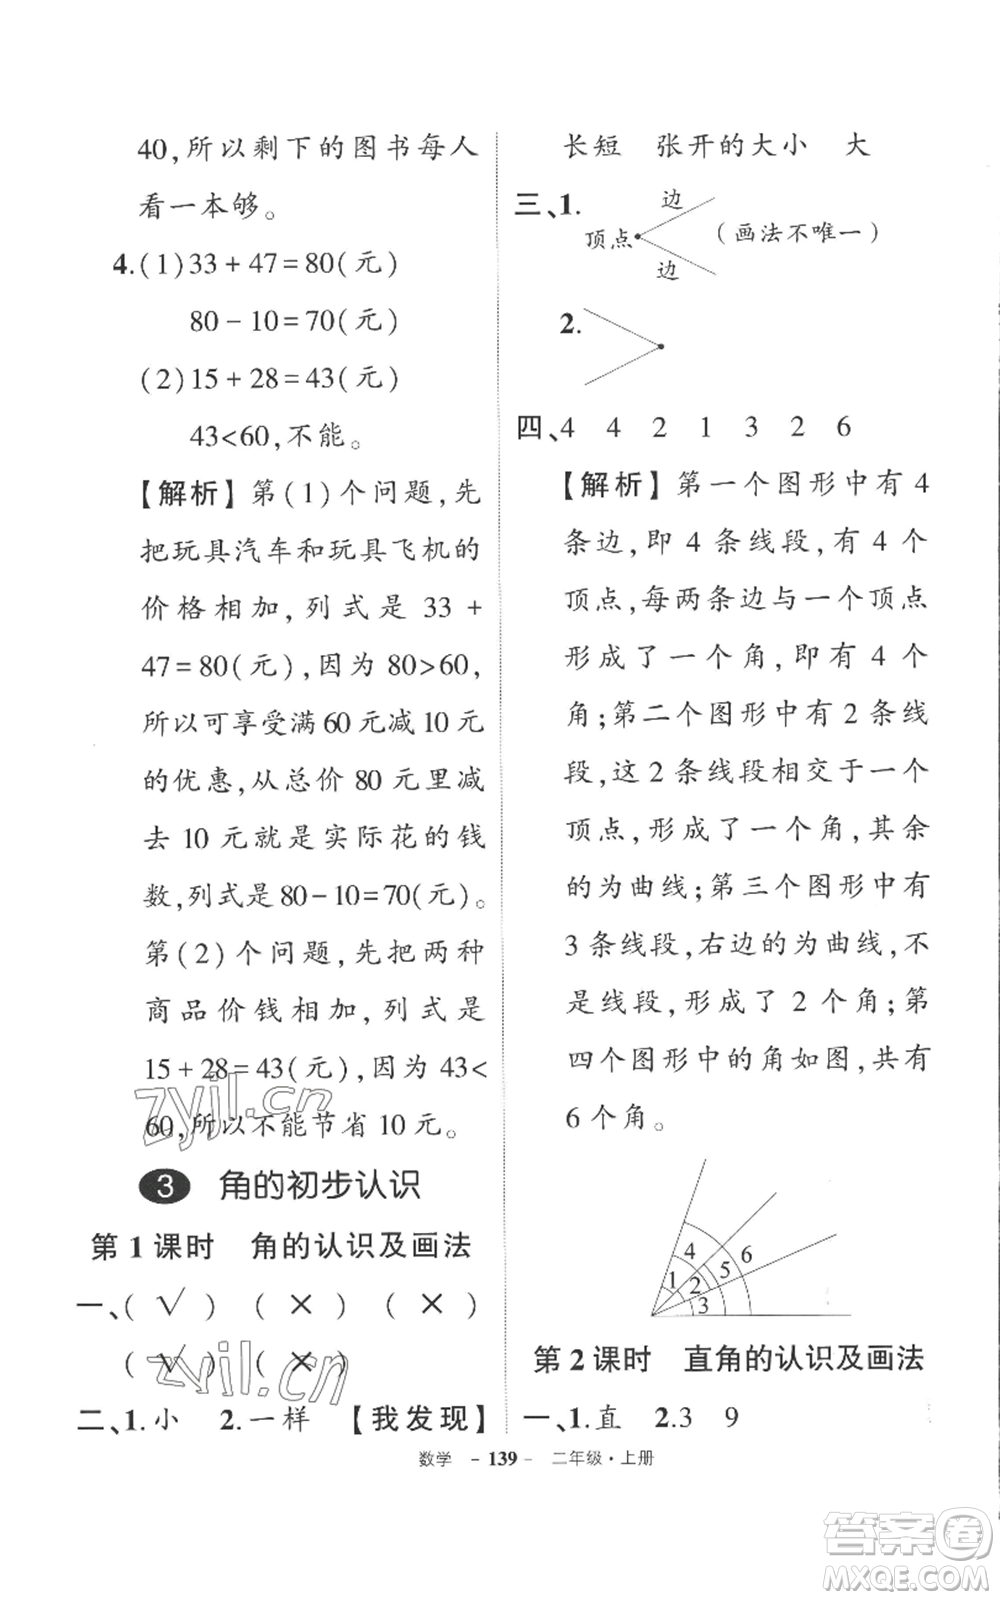 40,所以剩下的图书每人
看一本够。
4.(1)33+47=80(元)
80-10=70(元)
(2)15+28=43(元)
43<60,不能。
【解析】第(1)个问题,先
把玩具汽车和玩具飞机的
价格相加,列式是 33 +
47=80(元),因为 80>60,
所以可享受满 60 元减 10 元
的优惠,从总价 80 元里减
去 10 元就是实际花的钱
数,列式是80-10=70(元)。
第(2)个问题,先把两种
商品价钱相加,列式是
15+28=43(元),因为 43<
60,所以不能节省 10 元。
3 角的初步认识
第 1 课时 角的认识及画法
一、( √ ) ( × ) ( × )
( √ ) ( × )
二、1.小 2.一样 【我发现】
长短 张开的大小 大
三、1. 边
顶点 (画法不唯一)
边
2.
四、4 4 2 1 3 2 6
【解析】第一个图形中有 4
条边,即 4 条线段,有 4 个
顶点,每两条边与一个顶点
形成了一个角,即有 4 个
角;第二个图形中有 2 条线
段,这 2 条线段相交于一个
顶点,形成了一个角,其余
的为曲线;第三个图形中有
3 条线段,右边的为曲线,不
是线段,形成了 2 个角;第
四个图形中的角如图,共有
6 个角。
4 6
1 2 5
3
第 2 课时 直角的认识及画法
一、1.直 2.3 9
数学 - 139 - 二年级·上册
zyjl.cn
zyjl.cn
答案卷
MXQE.COM